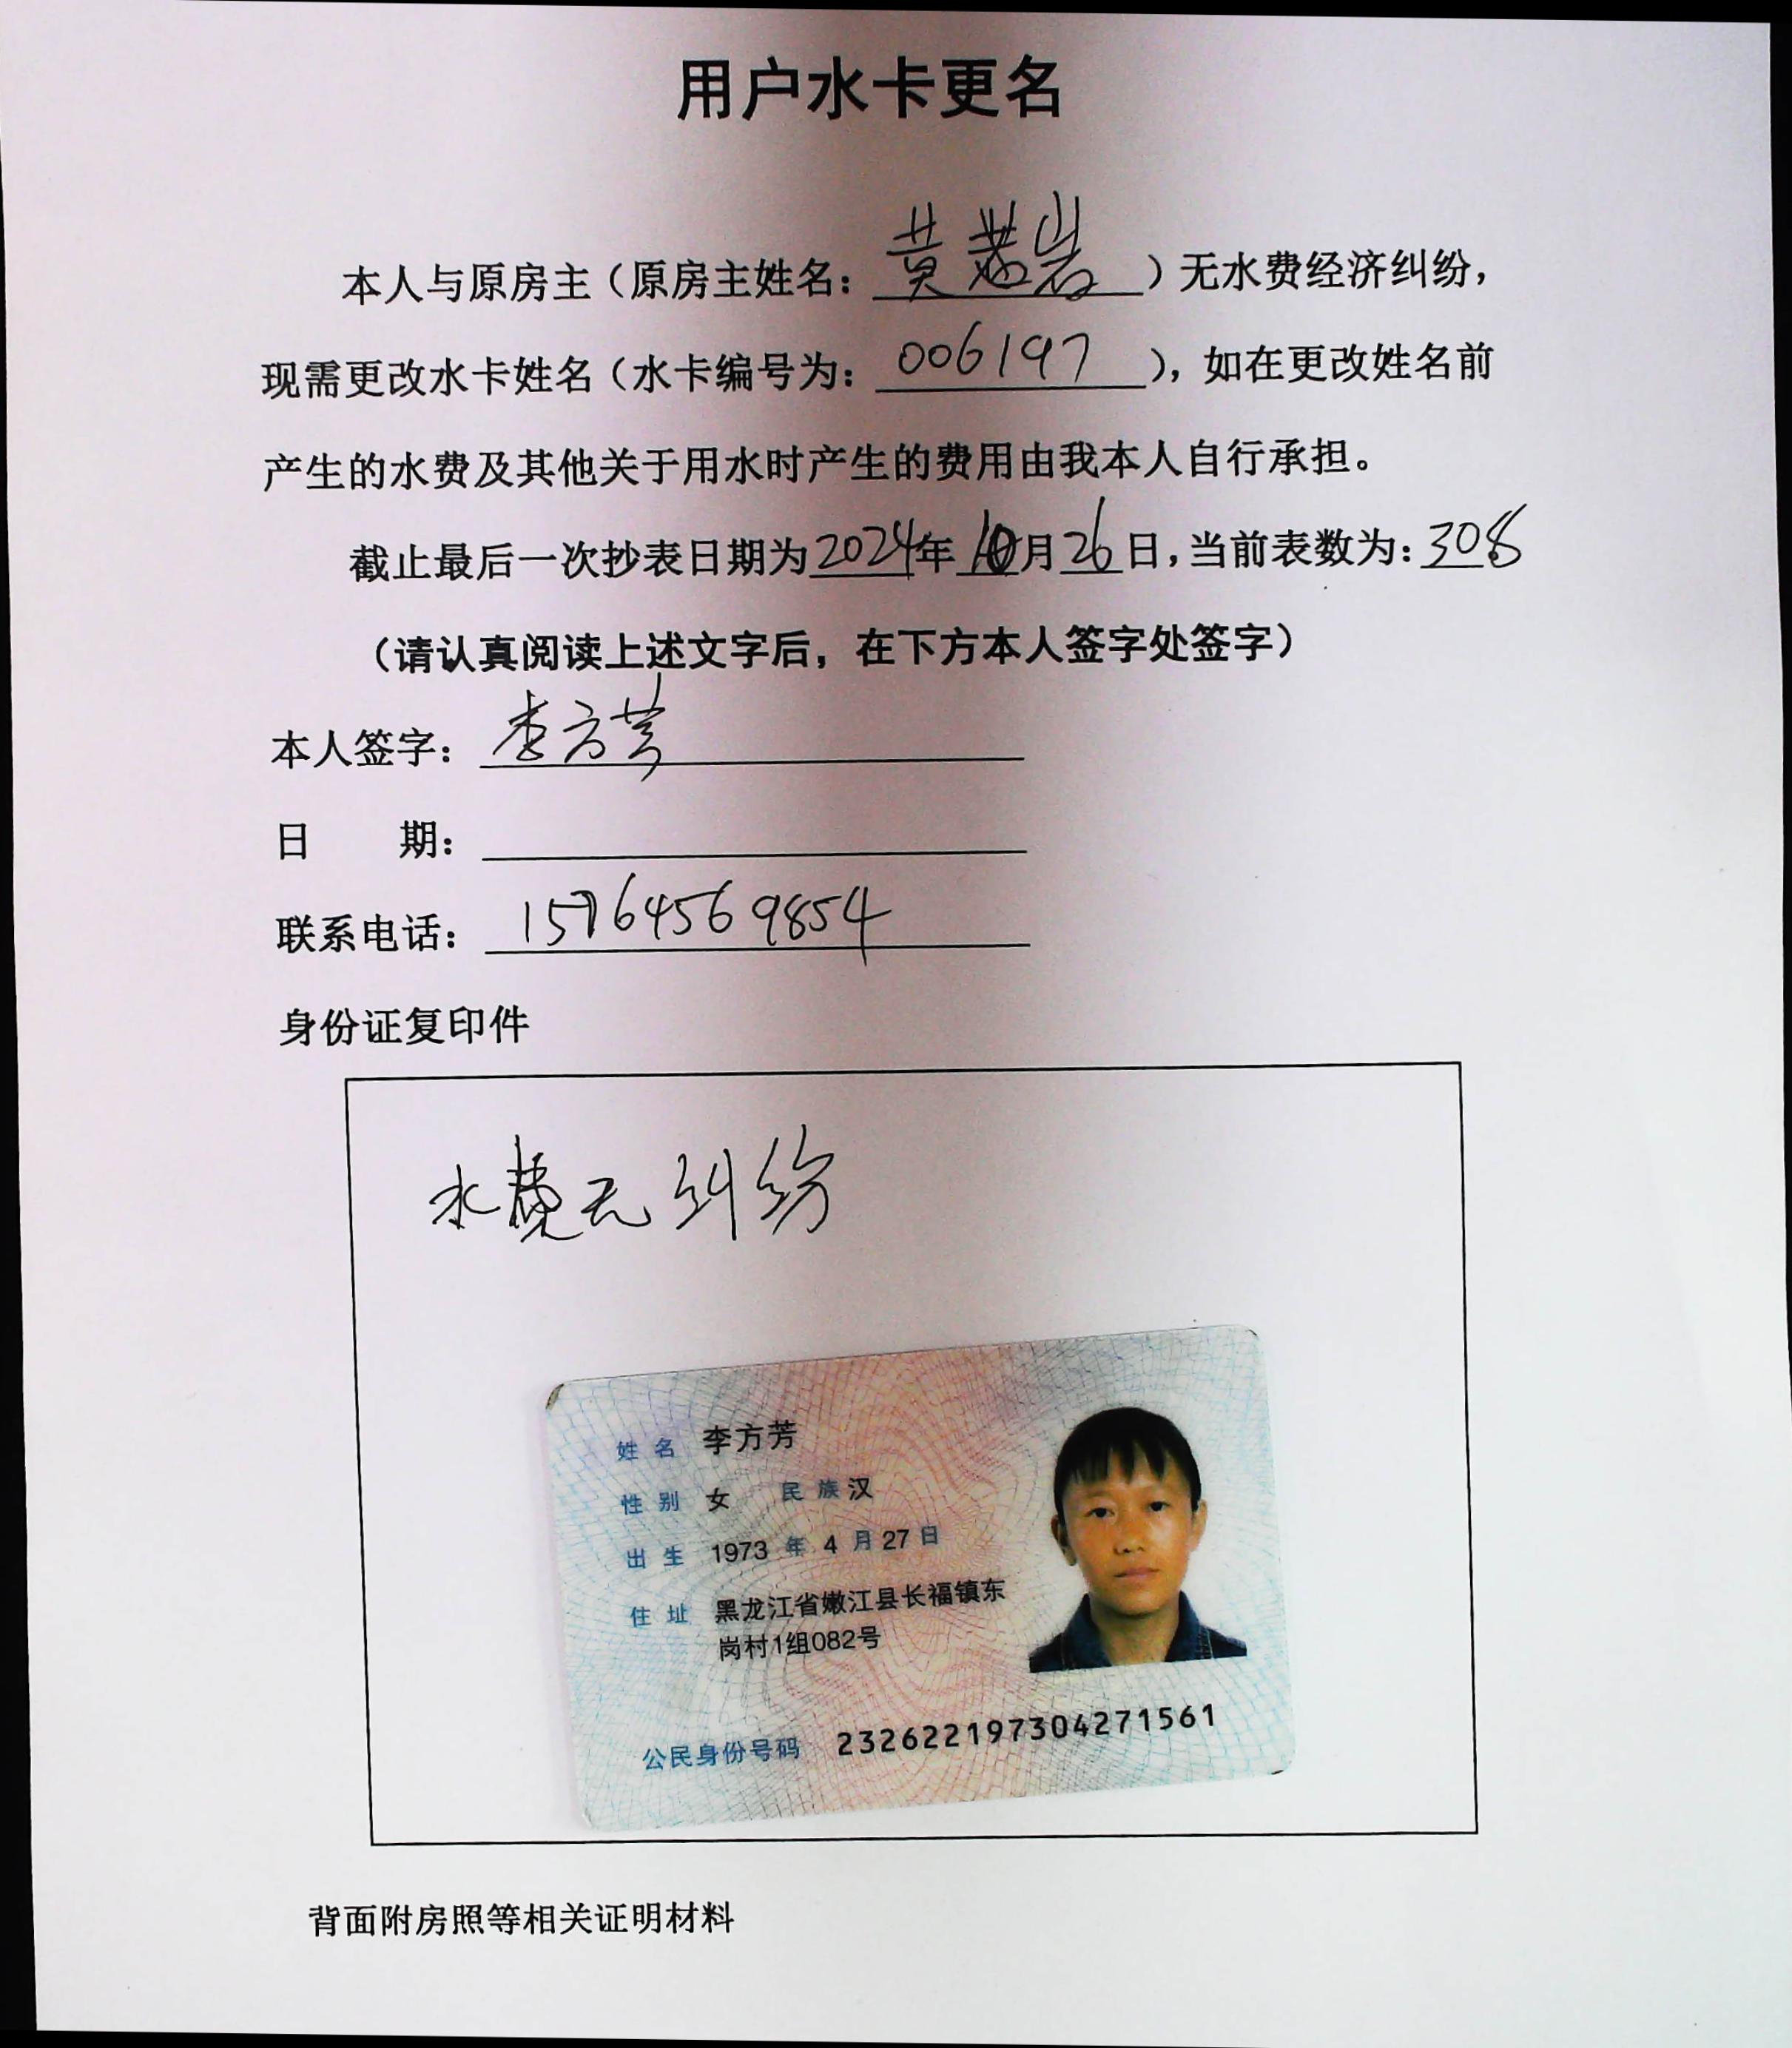 用户水卡更名
本人与原房主（原房主姓名：黄岩）无水费经济纠纷，
现需更改水卡姓名（水卡编号为：006197），如在更改姓名前
产生的水费及其他关于用水时产生的费用由我本人自行承担。
截止最后一次抄表日期为2024年10月26日，当前表数为：308
（请认真阅读上述文字后，在下方本人签字处签字）
本人签字：李方芳
日　　期：
联系电话：15764569854
身份证复印件
水费无纠纷
姓名 李方芳
性别 女 民族 汉
出生 1973 年 4 月 27 日
住址 黑龙江省嫩江县长福镇东
岗村1组082号
公民身份号码 232622197304271561
背面附房照等相关证明材料